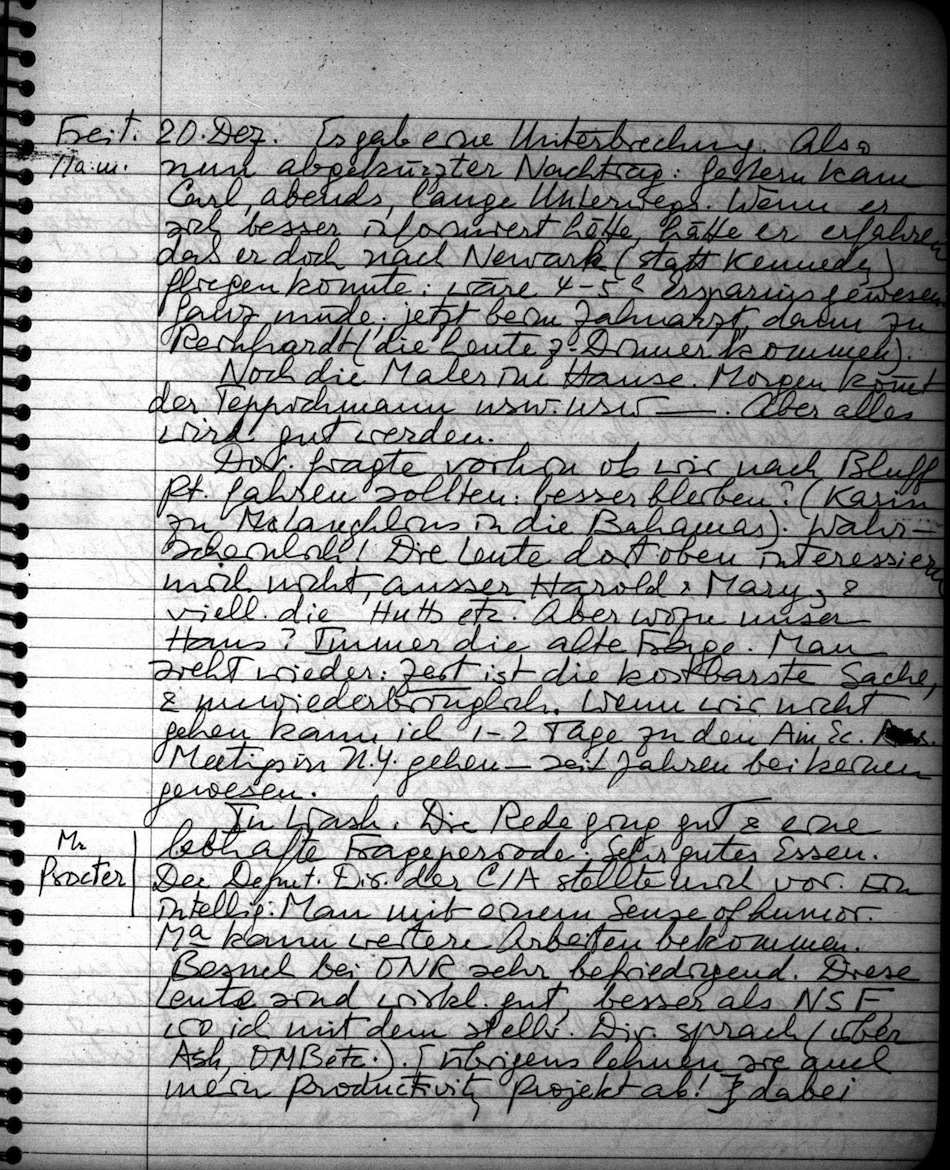 Freit. 20. Dez. Es gab eine Unterbrechung. Also
11 a.m. nun abgekürzter Nachtrag: gestern kam
Carl, abends, lange Unterwegs. Wenn er
sich besser informiert hätte, hätte er erfahren
daß er doch nach Newark (statt Kennedy)
fliegen konnte; wäre 4-5 Ersparnis gewesen
ganz müde. jetzt beim Zahnarzt, dann zu
Reinhardt (die heute z. Dinner kommen).
Noch die Maler im Hause. Morgen kommt
der Teppichmann usw. usw —. Aber alles
wird gut werden.
Dor. fragte vorhin ob wir nach Bluff
Pt. fahren sollten; besser bleiben? (Karin
zu McLaughlins in die Bahamas). Wahr-
scheinlich! Die Leute dort oben interessieren
mich nicht, ausser Harold & Mary, &
viell. die Hutts etc. Aber wozu unser
Haus? Immer die alte Frage. Man
sieht wieder: Zeit ist die kostbarste Sache,
& unwiederbringlich. Wenn wir nicht
gehen kann ich 1-2 Tage zu den Am Ec.
Meetings in N.Y. gehen — seit Jahren bei keinem
gewesen.
In Wash. Die Rede ging gut & eine
Mr. Procter
lebhafte Frageperiode. Sehr gutes Essen.
Der Deput. Dir. der CIA stellte mich vor. Ein
intellig. Man mit einem Sense of humor.
Ma kann weitere Arbeiten bekommen.
Besuch bei ONR sehr befriedigend. Diese
Leute sind wirkl. gut, besser als NSF,
wo ich mit dem stellv. Dir. sprach (über
Ash, OMB etc.). [übrigens lehnen sie auch
mein Productivity Projekt ab!] dabei